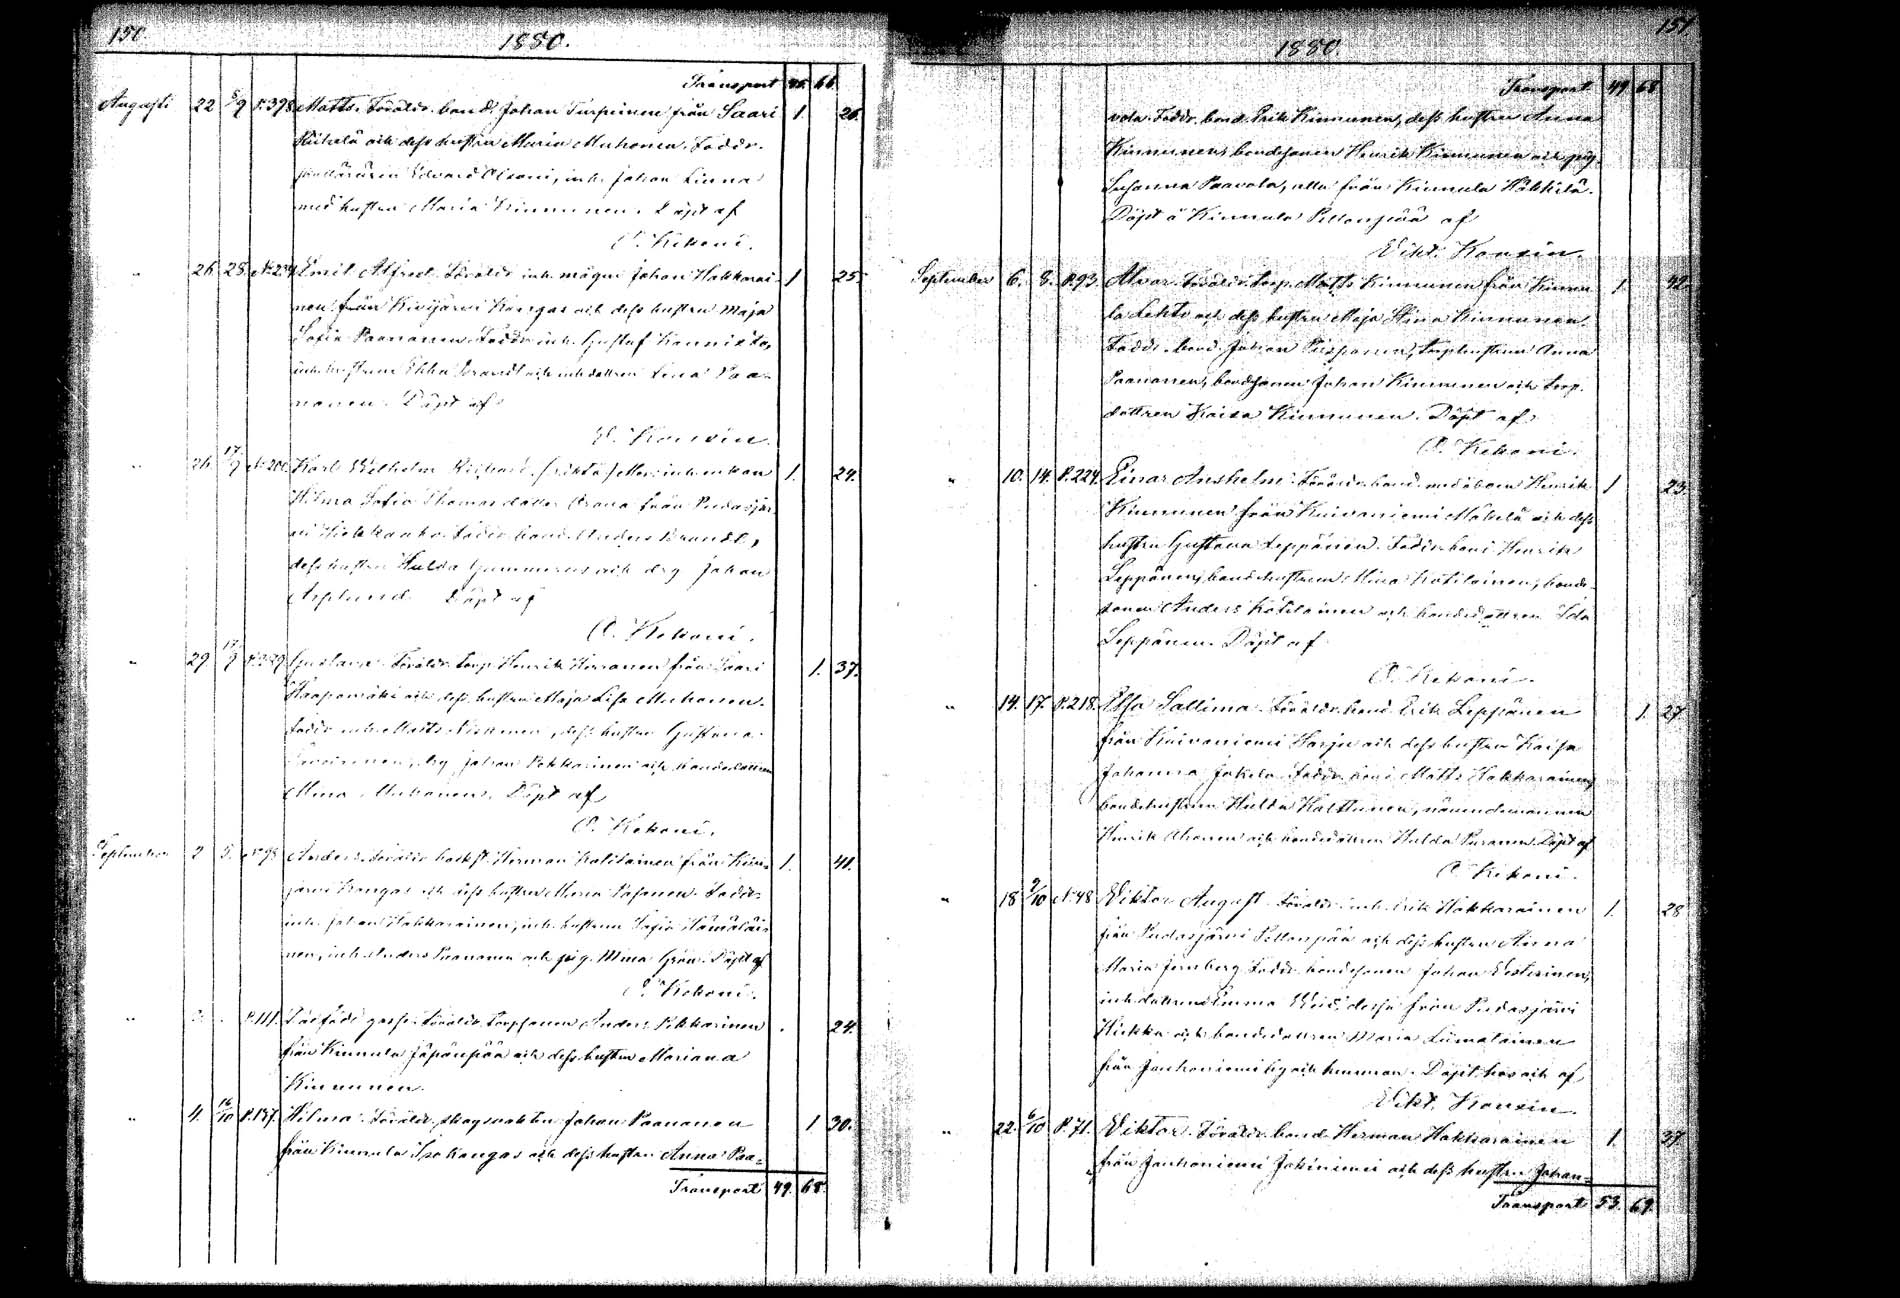 150.
1880.
Transport 45. 66.
Augusti 22 5/9 P.398 Matts. Föräldr. bond. Johan Turpeinen från Saari 1. 26.
och dess hustru Maria Muhonen. Faddr.
Edvard inh. Johan Linna
med hustru Maria Kinnunen. Döpt af
O. Kekoni.
" 26 28. Emil Alfred. Föräldr. inh. mågen Johan Hakkarai- 1 25.
nen från Kivijärvi Kangas och dess hustru Maja
Sofia Paananen. Faddr. inh. Gustaf Kannisto,
inh. hustrun Brandt och inh. dottren Lina Paa-
nanen. Döpt af
V. Konsin.
" 26 17/9 Karl Wilhelm 1. 24.
Hilma Sofia Thomasdotter från Pudasjär-
vi Faddr. bond. Anders Brandt,
dess hustru Hulda Gummerus och drg Johan
Asplund Döpt af
O. Kekoni.
" 29 17/9 Gustava. Föräldr. torp. Henrik från Saari 1. 37.
Haapomäki och dess hustru Maja Lisa Muhonen.
Faddr. inh. Matts dess hustru Gustava
drg Johan Pekkarinen och bondedottren
Mina Muhonen. Döpt af
O. Kekoni.
September 2 5. Anders. Föräldr. Herman Kotilainen från Kivi- 1. 41.
järvi Kangas och dess hustru Maria Faddr.
inh. Johan Hakkarainen, inh. hustrun Sofia Hämäläi-
nen, inh. Anders Paananen och pig. Mina Grön. Döpt af
O. Kekoni.
" P.111. Dödfödt gosse. Föräldr. Torpsonen Anders Pekkarinen 24.
från Kinnula Jäpänpää och dess hustru Mariana
Kinnunen.
" 4. 16/10 P.137. Hilma. Föräldr. skogvakten Johan Paananen 1 30.
från Kinnula Isokangas och dess hustru Anna Paa-
Transport 49. 68.
151.
1880.
Transport 49 68
vola. Faddr. bond. Erik Kinnunen, dess hustru Anna
Kinnunen, bondesonen Henrik Kinnunen och pig.
Susanna Paavola, alla från Kinnula Häkkilä.
Döpt å Kinnula Pellonpää af
Vikt. Konsin.
September 6. 8. P.93. Alvar. Föräldr. torp. Matts Kinnunen från Kinnu- 1. 42.
la Lehto och dess hustru Maja Stina Kinnunen.
Faddr. bond. Johan torphustrun Anna
Paananen, bondsonen Johan Kinnunen och torp.
dottren Kaisa Kinnunen. Döpt af
O. Kekoni.
" 10. 14. P.224. Einar Anshelm. Föräldr. bond. Henrik 1 23.
Kinnunen från Kuivaniemi Mäkelä och dess
hustru Gustava Leppänen. Faddr. bond. Henrik
Leppänen, bondehustrun Mina Kotilainen, bonde-
sonen Anders Kotilainen och bondedottren Ida
Leppänen. Döpt af
O. Kekoni.
" 14. 17. P.218. Elsa Sallima. Föräldr. bond. Erik Leppänen 1. 27.
från Kuivaniemi Harju och dess hustru Kaisa
Johanna Jokela. Faddr. bond. Matts Hakkarainen,
bondehustrun Hulda Kalttunen, nämndemannen
Henrik Ahonen och bondedottren Hulda Puranen. Döpt af
O. Kekoni.
" 18 9/10 N:48 Viktor August. Föräldr. inh. Erik Hakkarainen 1. 28
från Pudasjärvi Pellonpää och dess hustru Anna
Maria Jernberg. Faddr. bondesonen Johan Vesterinen,
inh. dottren Emma från Pudasjärvi
Hiekka och bondedottren Maria Liimatainen
från Jauhoniemi by och hemman. Döpt hos och af
Vikt. Konsin.
" 22. 6/10 P.71. Viktor. Föräldr. bond. Herman Hakkarainen 1. 37.
från Jauhoniemi Jokiniemi och dess hustru Johan-
Transport 53. 69.